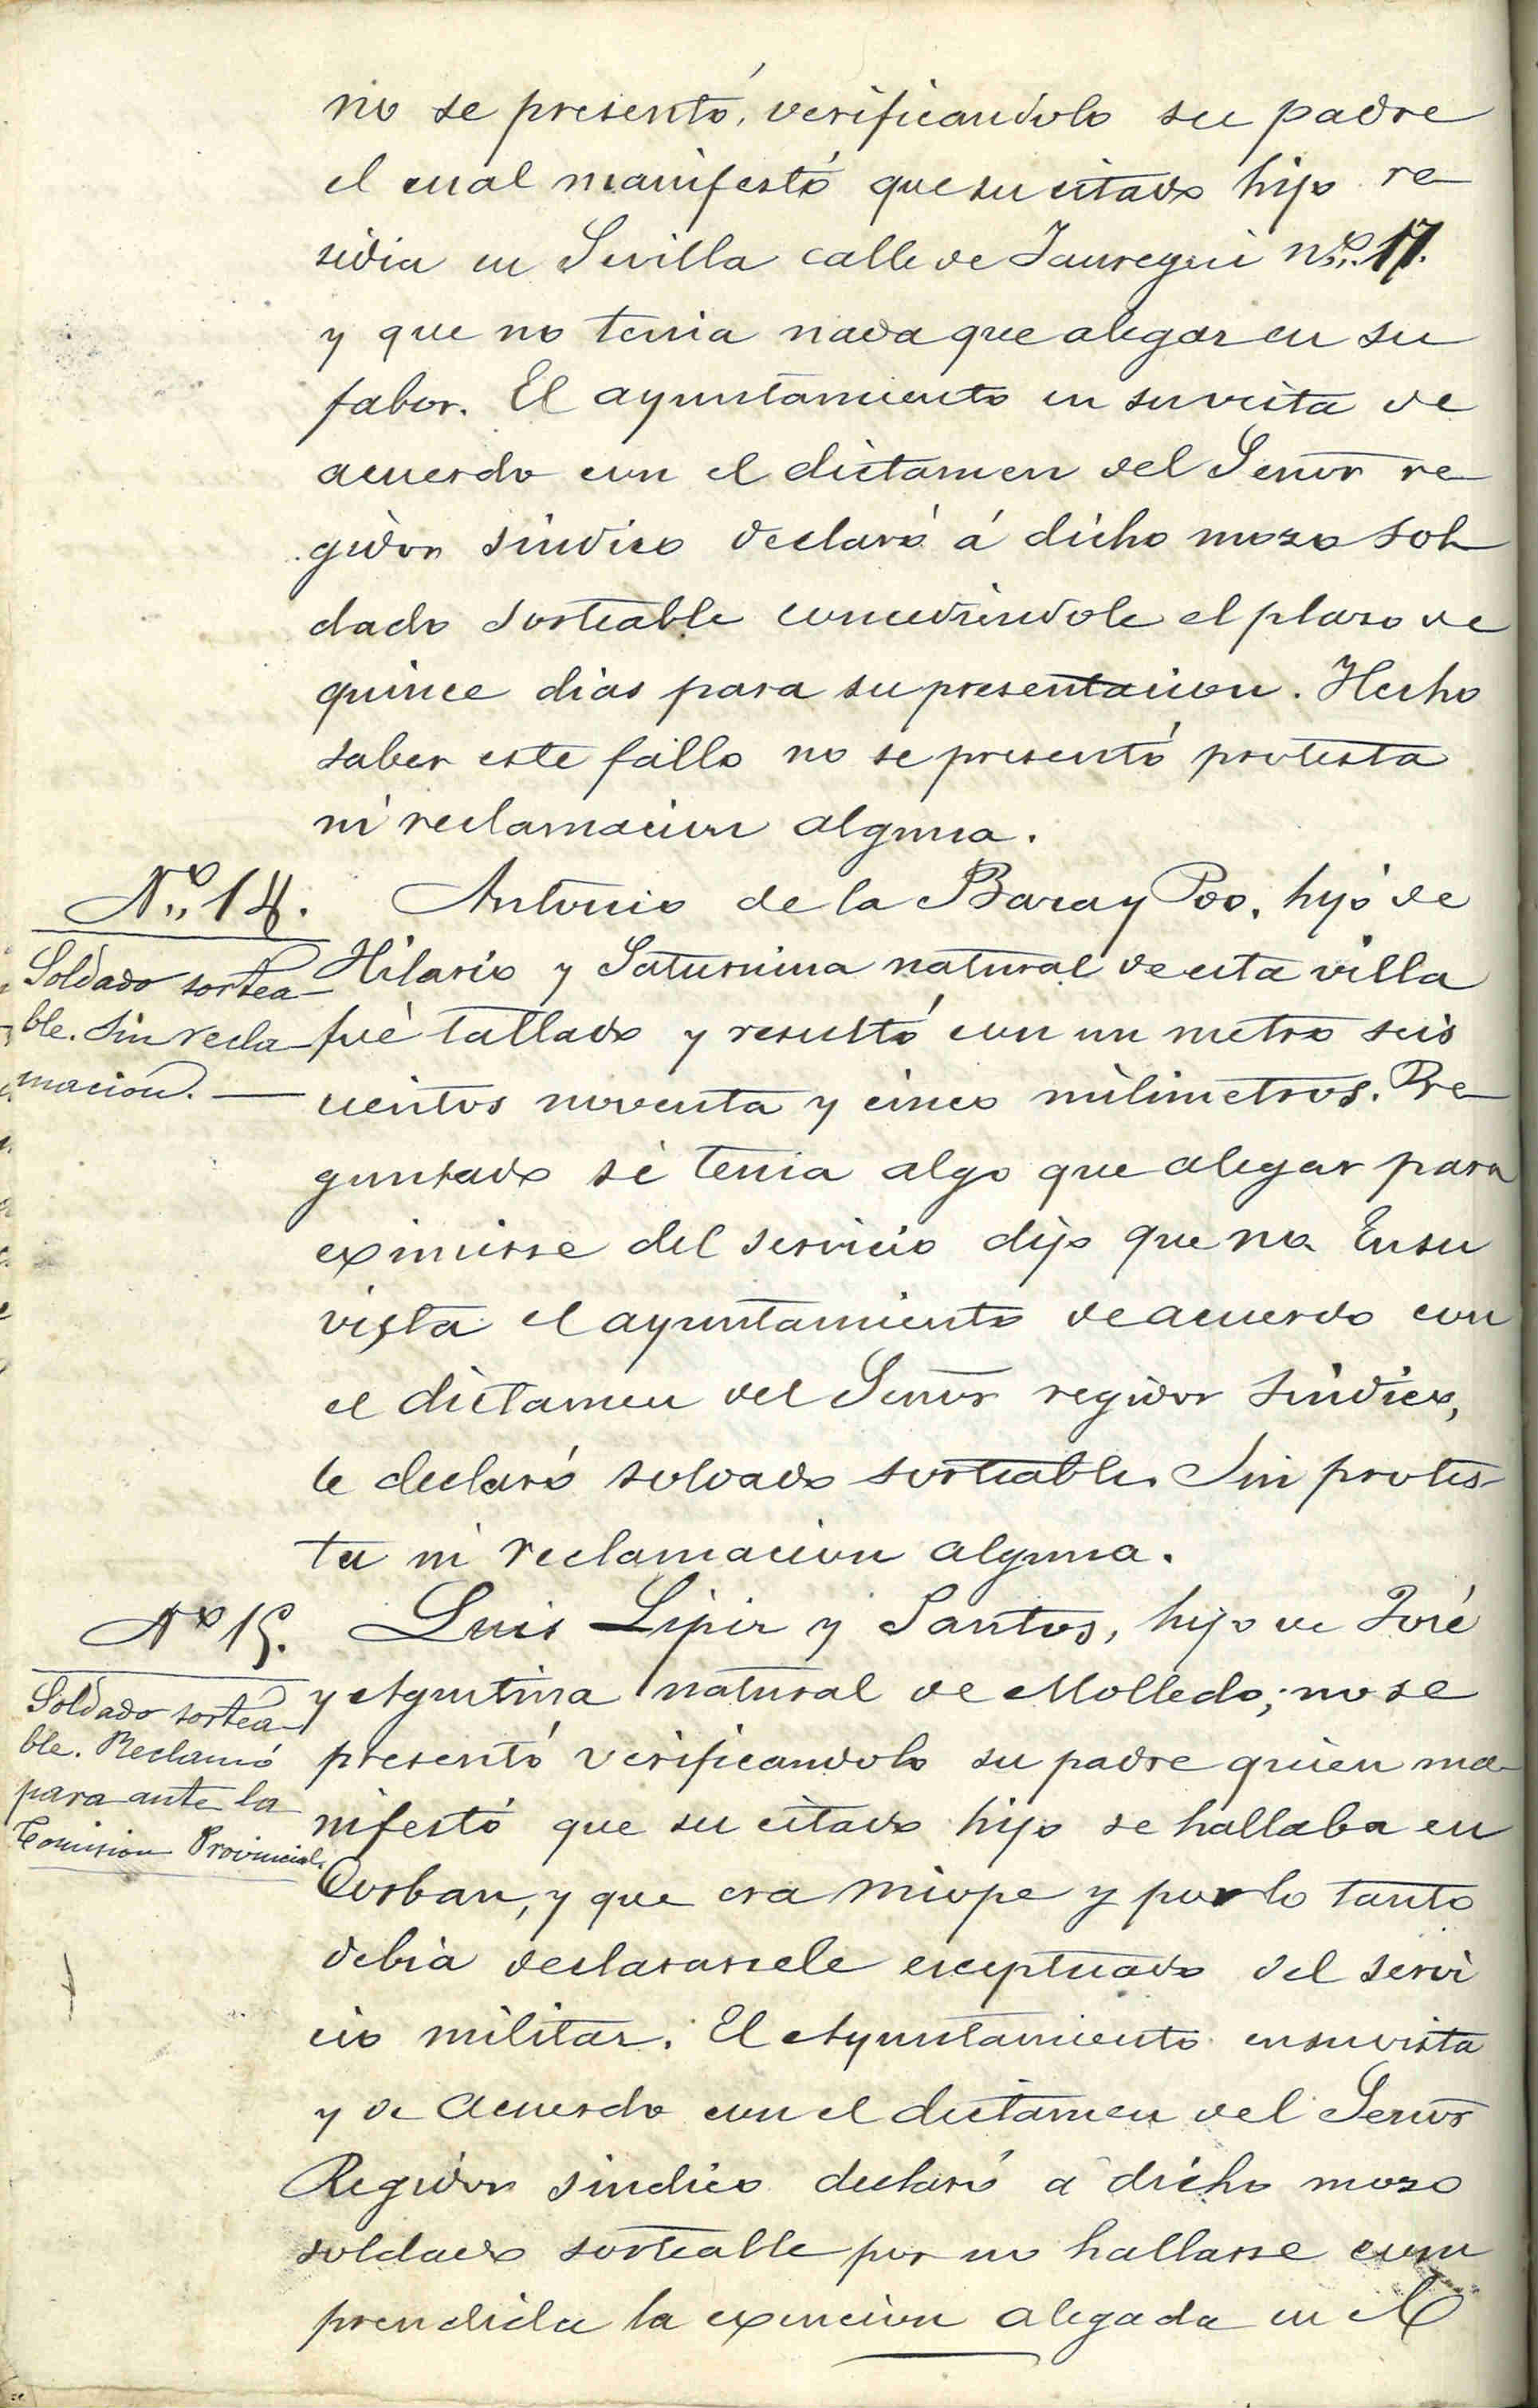 no se presentó, verificandolo su padre
el cual manifestó que su citado hijo re
sidia en Sevilla calle de Jauregui nº. 17.
y que no tenia nada que alegar en su
fabor. El ayuntamiento en su vista de
acuerdo con el dictamen del Señor re
gidor sindico declaró á dicho mozo sol
dado sorteable concediendole el plazo de
quince dias para su presentacion. Hecho
saber este fallo no se presentó protesta
ni reclamacion alguna.
Nº. 14.
Soldado sortea
ble. Sin recla
macion. —
Antonio de la Bara y Poo, hijo de
Hilario y Saturnina natural de esta villa
fué tallado y resultó con un metro seis
cientos noventa y cinco milimetros. Pre
guntado si tenia algo que alegar para
eximirse del servicio dijo que no. En su
vista el ayuntamiento de acuerdo con
el dictamen del Señor regidor sindico,
le declaró soldado sorteable. Sin protes
ta ni reclamacion alguna.
Nº 15.
Soldado sortea
ble. Reclamó
para ante la
Comision Provincial.
Luis y Santos, hijo de José
y Agustina natural de Molledo; no se
presentó verificandolo su padre quien ma
nifestó que su citado hijo se hallaba en
Corban, y que era miope y por lo tanto
debia declararsele exceptuado del servi
cio militar. El Ayuntamiento en su vista
y de acuerdo con el dictamen del Señor
Regidor sindico declaró á dicho mozo
soldado sorteable por no hallarse com
prendida la exencion alegada en el